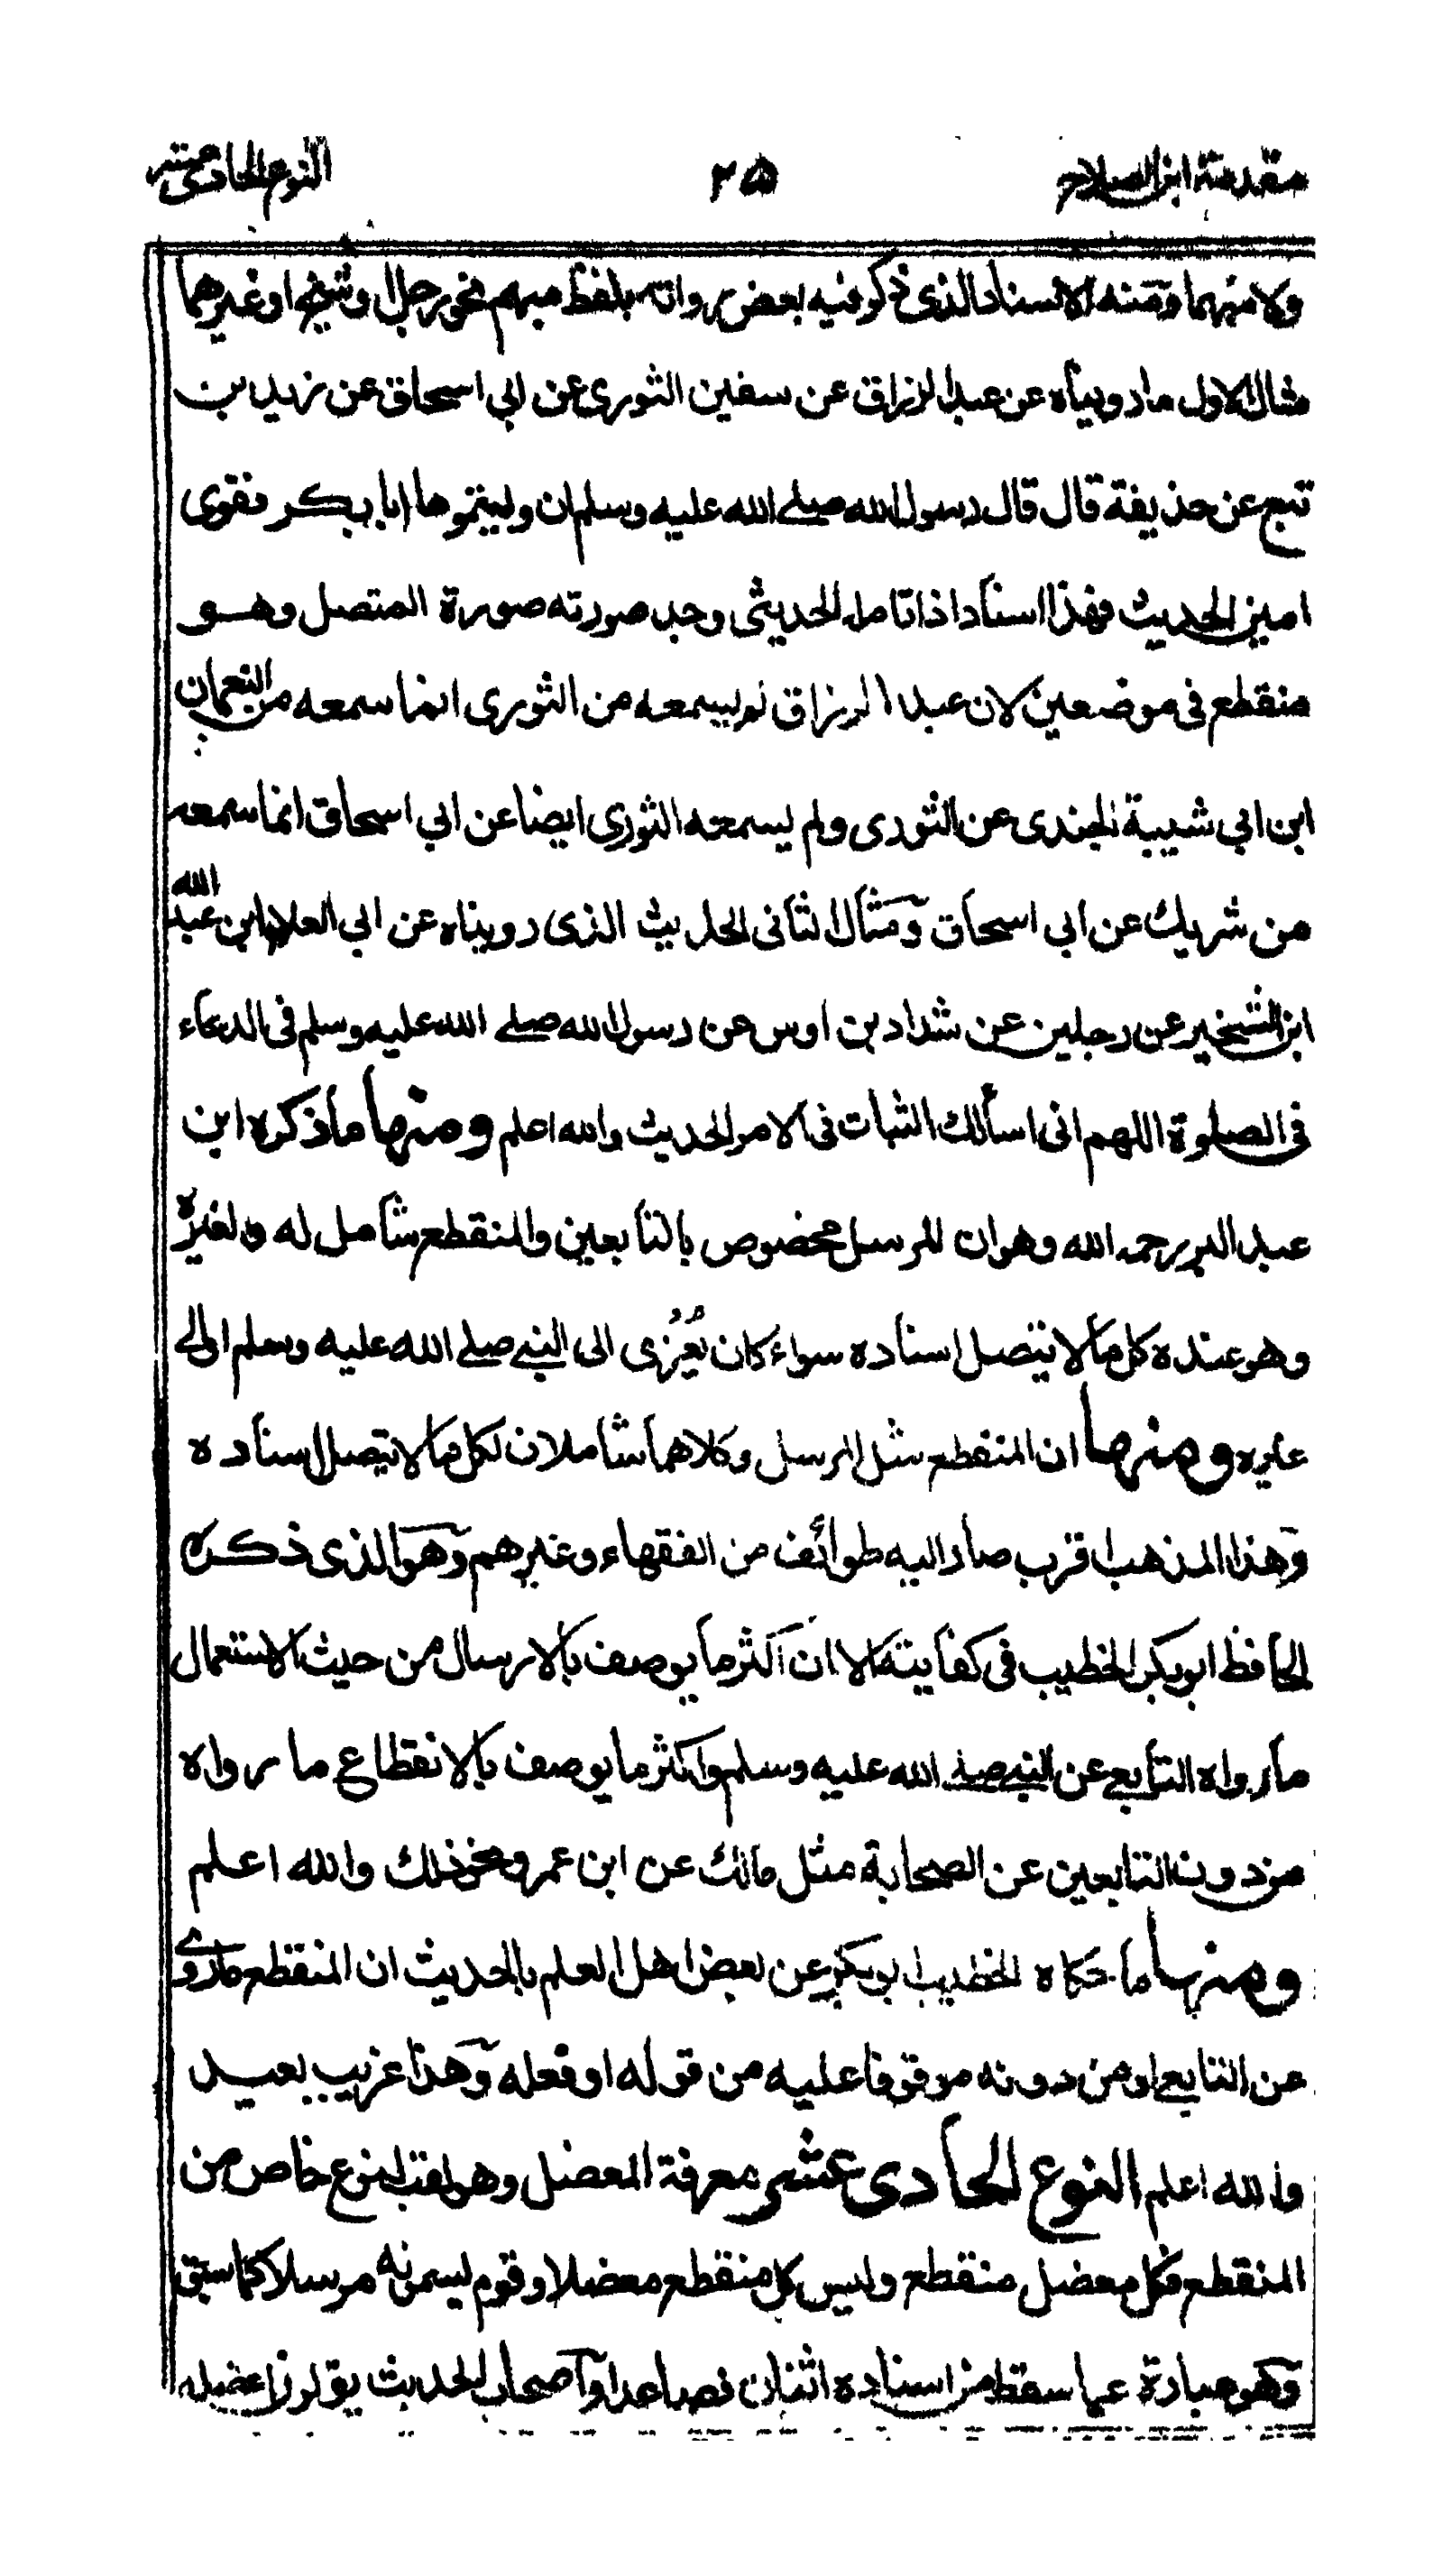 مقدمة ابن الصلاح ٢٥ النوع الحادي عشر
ولا مبهما ومنه الاسناد الذى ذكر فيه بعض رواته بلفظ مبهم نحو رجل او شيخ او غيرهما
مثال الاول ما رويناه عن عبد الرزاق عن سفين الثورى عن ابي اسحاق عن زيد بن
تيع عن حذيفة قال قال رسول الله صلى الله عليه وسلم ان وليتموها ابا بكر فقوى
امين الحديث فهذا اسناد اذا تامله الحديثى وجد صورته صورة المتصل وهو
منقطع فى موضعين لان عبد الرزاق لم يسمعه من الثورى انما سمعه من النعمان
ابن ابي شيبة الجندى عن الثورى ولم يسمعه الثورى ايضا عن ابي اسحاق انما سمعه
من شريك عن ابي اسحاق ومثال الثانى الحديث الذى رويناه عن ابي العلاء ابن عبد الله
ابن الشخير عن رجلين عن شداد بن اوس عن رسول الله صلى الله عليه وسلم فى الدعاء
فى الصلوة اللهم انى اسألك الثبات فى الامر الحديث والله اعلم ومنها ما ذكره ابن
عبد البر رحمه الله وهو ان المرسل مخصوص بالتابعين والمنقطع شامل له ولغيره
وهو عنده كل ما لا يتصل اسناده سواء كان يُعْزى الى النبى صلى الله عليه وسلم او الى
غيره ومنها ان المنقطع مثل المرسل وكلاهما شاملان لكل ما لا يتصل اسناده
وهذا المذهب اقرب صار اليه طوائف من الفقهاء وغيرهم وهو الذى ذكره
الحافظ ابو بكر الخطيب فى كفايته الا ان اكثر ما يوصف بالارسال من حيث الاستعمال
ما رواه التابعى عن النبى صلى الله عليه وسلم واكثر ما يوصف بالانقطاع ما رواه
من دون التابعين عن الصحابة مثل مالك عن ابن عمر ونحو ذلك والله اعلم
ومنها ما حكاه الخطيب ابو بكر عن بعض اهل العلم بالحديث ان المنقطع ما روى
عن التابعى او من دونه موقوفا عليه من قوله او فعله وهذا غريب بعيد
والله اعلم النوع الحادى عشر معرفة المعضل وهو لقب لنوع خاص من
المنقطع فكل معضل منقطع وليس كل منقطع معضلا وقوم يسمونه مرسلا كما سبق
وهو عبارة عما سقط من اسناده اثنان فصاعدا واصحاب الحديث يقولون اعضله